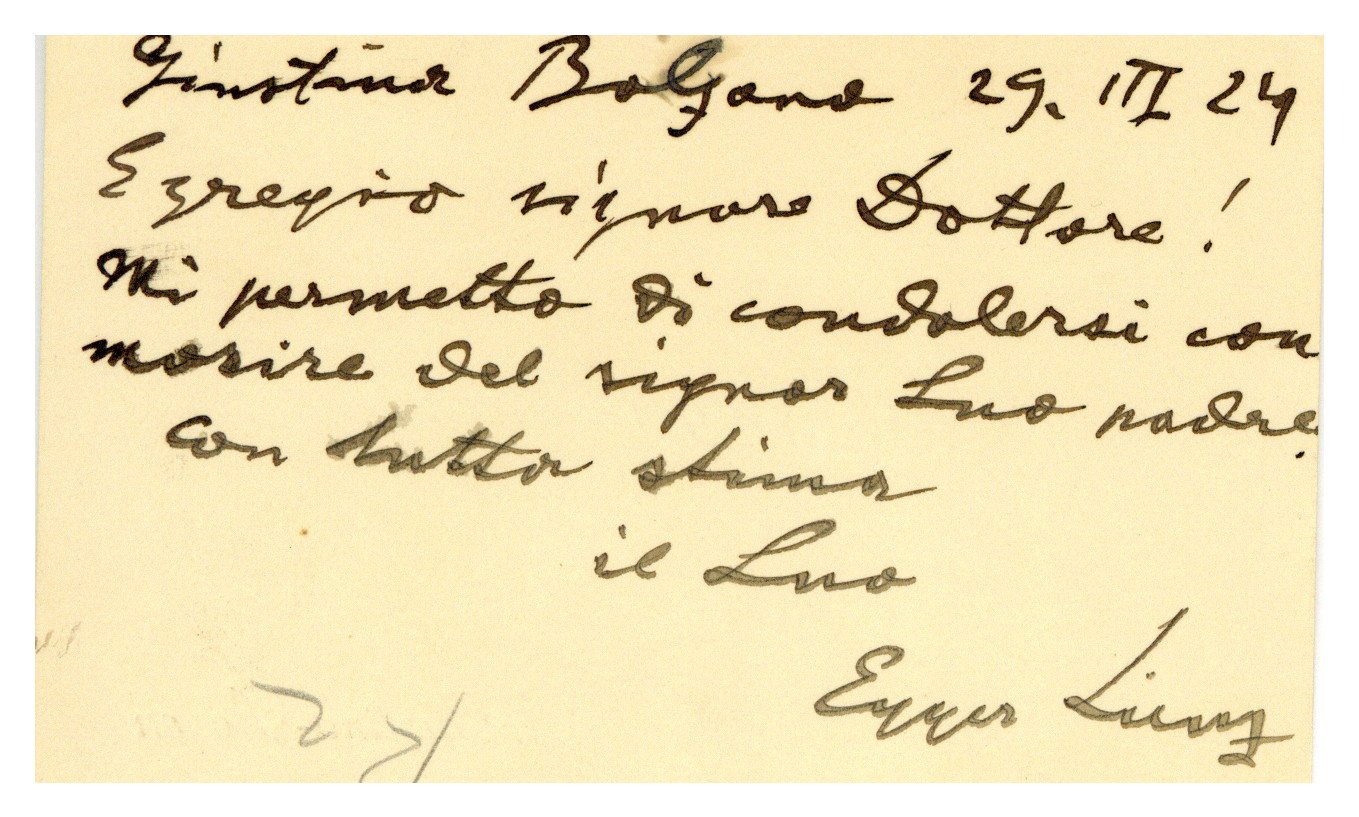 Giustina Bolzano 29. III 24
Egregio signore Dottore!
Mi permetto di condolersi con
morire del signor Suo padre.
con tutta stima
il Suo
Egger Lienz